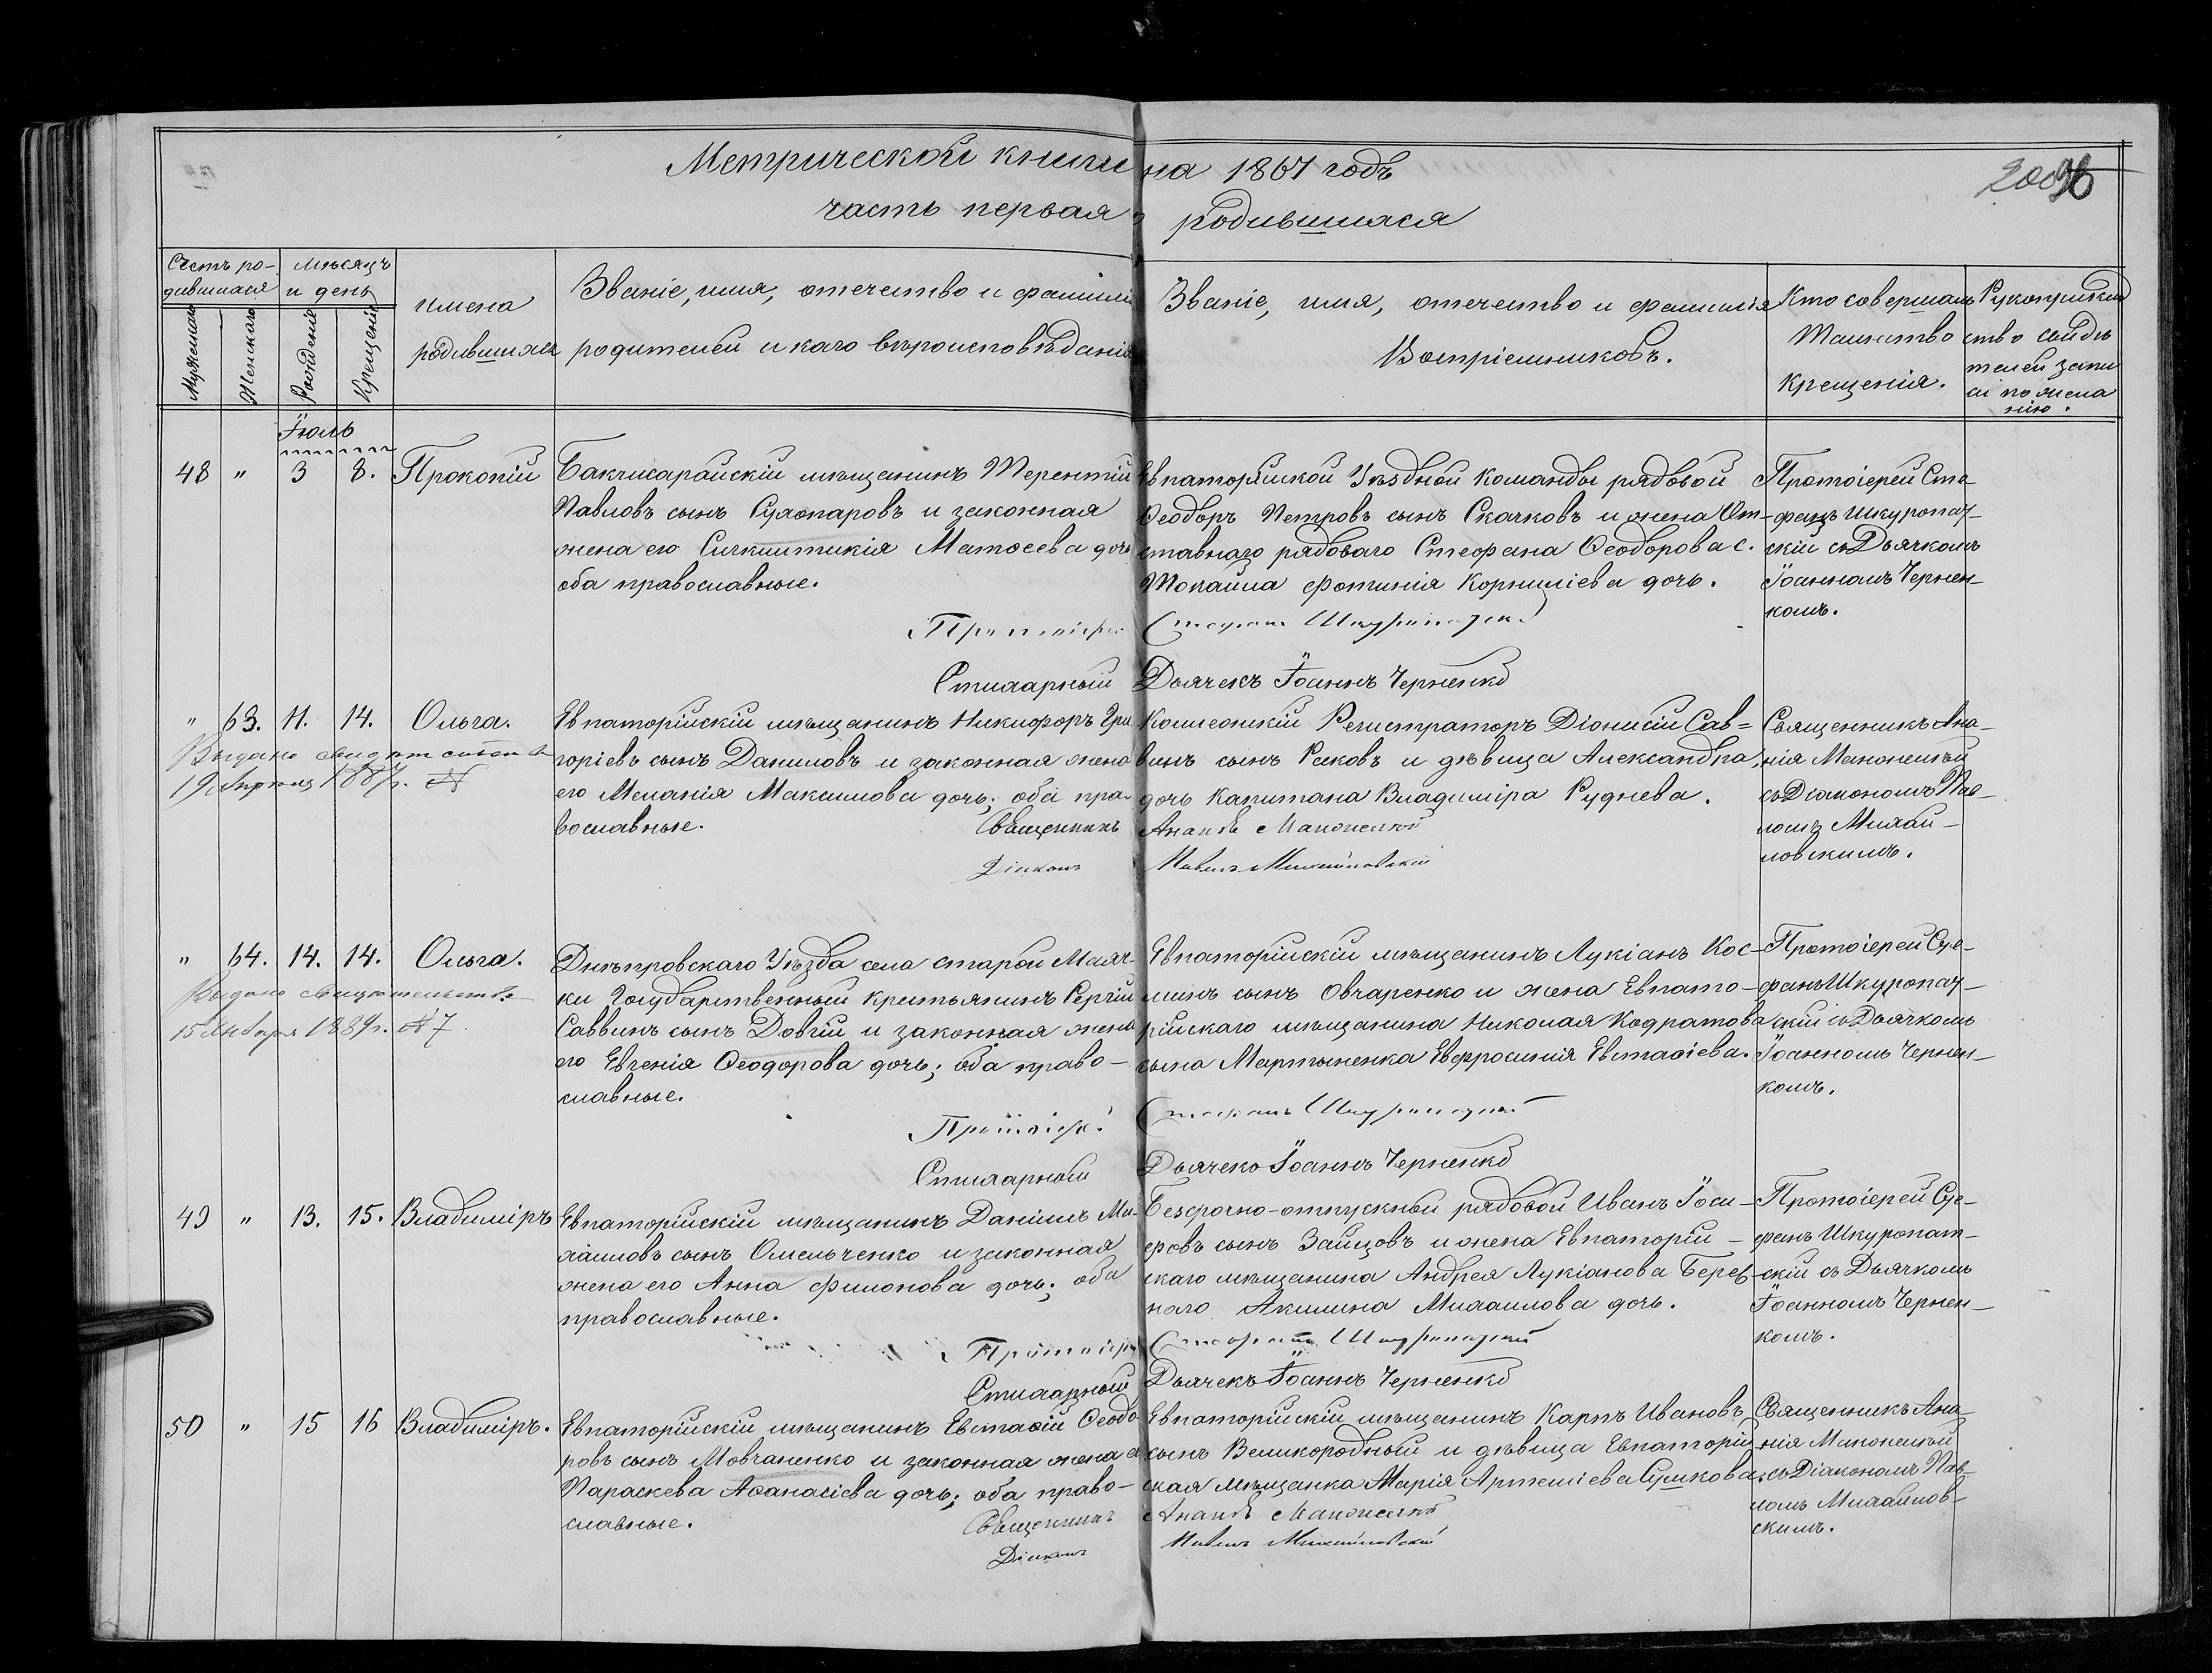 Метрической книги на 1867 годъ
часть первая о родившихся
Счетъ ро-
дившихся
Мужескаго
Женскаго
мѣсяцъ
и день
Рожденіе
Крещеніе
имена
родившихся
Званіе, имя, отчество и фамилія
родителей и каго вѣроисповѣданія
Званіе, имя, отчество и фамилія
Воспріемниковъ.
Кто совершалъ
Таинство
крещенія.
Рукоприклад
ство свидѣ
телей запи
си по жела
нію.
Іюль
48 " 3 8. Прокопій
Бакчисарайскій мѣщанинъ Терентій
Павловъ сынъ и законная
жена его Матѳеева дочь
оба православные.
Евпаторійской Уѣздной команды рядовой
Ѳеодоръ Петровъ сынъ Скачковъ и жена От-
ставнаго рядоваго Стефана Ѳеодорова с.
Фотинія Корниліева дочь.
Протоіерей Сте-
фанъ Шкуропат-
скій съ Дьячкомъ
Іоанномъ Чернен-
комъ.
Протоіерей Стефанъ Шкуропатскій
Стихарный Дьячекъ Іоаннъ Черненко
" 63. 11. 14. Ольга.
Выдано свидѣтельство
19 Апрѣля 1887г. №
Евпаторійскій мѣщанинъ Никифоръ Гри
горіевъ сынъ Даниловъ и законная жена
его Меланія Максимова дочь; оба пра-
вославные.
Коллежскій Регистраторъ Діонисій Сав=
винъ сынъ Раковъ и дѣвица Александра,
дочь Капитана Владиміра Руднева.
Священникъ Ана-
нія
съ Діакономъ Пав-
ломъ Михай-
ловскимъ.
Священникъ
Діаконъ Павелъ Михайловскій
" 64. 14. 14. Ольга.
Выдано свидѣтельство
15 Января 1884г. № 7.
Днѣпровскаго Уѣзда села старой Маяч-
ки Государственный крестьянинъ Сергій
Саввинъ сынъ Довгій и законная жена
его Евгенія Ѳеодорова дочь; оба право-
славные.
Евпаторійскій мѣщанинъ Лукіанъ Кос-
минъ сынъ Овчаренко и жена Евпато-
рійскаго мѣщанина Николая Кодратова
сына Мартыненка Евфросинія Евстаѳіева.
Протоіерей Сте-
фанъ Шкуропат-
скій съ Дьячкомъ
Іоанномъ Чернен-
комъ.
Протоіерей Стефанъ Шкуропатскій
Стихарный Дьячекъ Іоаннъ Черненко
49 " 13. 15. Владиміръ
Евпаторійскій мѣщанинъ Даніилъ Ми-
хаиловъ сынъ Омельченко и законная
жена его Анна Филонова дочь; оба
православные.
Безсрочно-отпускный рядовой Иванъ Іоси-
фовъ сынъ Зайцовъ и жена Евпаторій-
скаго мѣщанина Андрея Лукіанова
Акилина Михаилова дочь.
Протоіерей Сте-
фанъ Шкуропат-
скій съ Дьячкомъ
Іоанномъ Чернен-
комъ.
Протоіерей Стефанъ Шкуропатскій
Стихарный Дьячекъ Іоаннъ Черненко
50 " 15 16 Владиміръ.
Евпаторійскій мѣщанинъ Евстаѳій Ѳеодо
ровъ сынъ Мовчаненко и законная жена е
Параскева Аѳанасіева дочь; оба право-
славные.
Евпаторійскій мѣщанинъ Карпъ Ивановъ
сынъ Великородный и дѣвица Евпаторій
ская мѣщанка Марія Артеміева Сушкова
Священникъ Ана-
нія
съ Діакономъ Пав-
ломъ Михайлов-
скимъ.
Священникъ
Діаконъ Павелъ Михайловскій